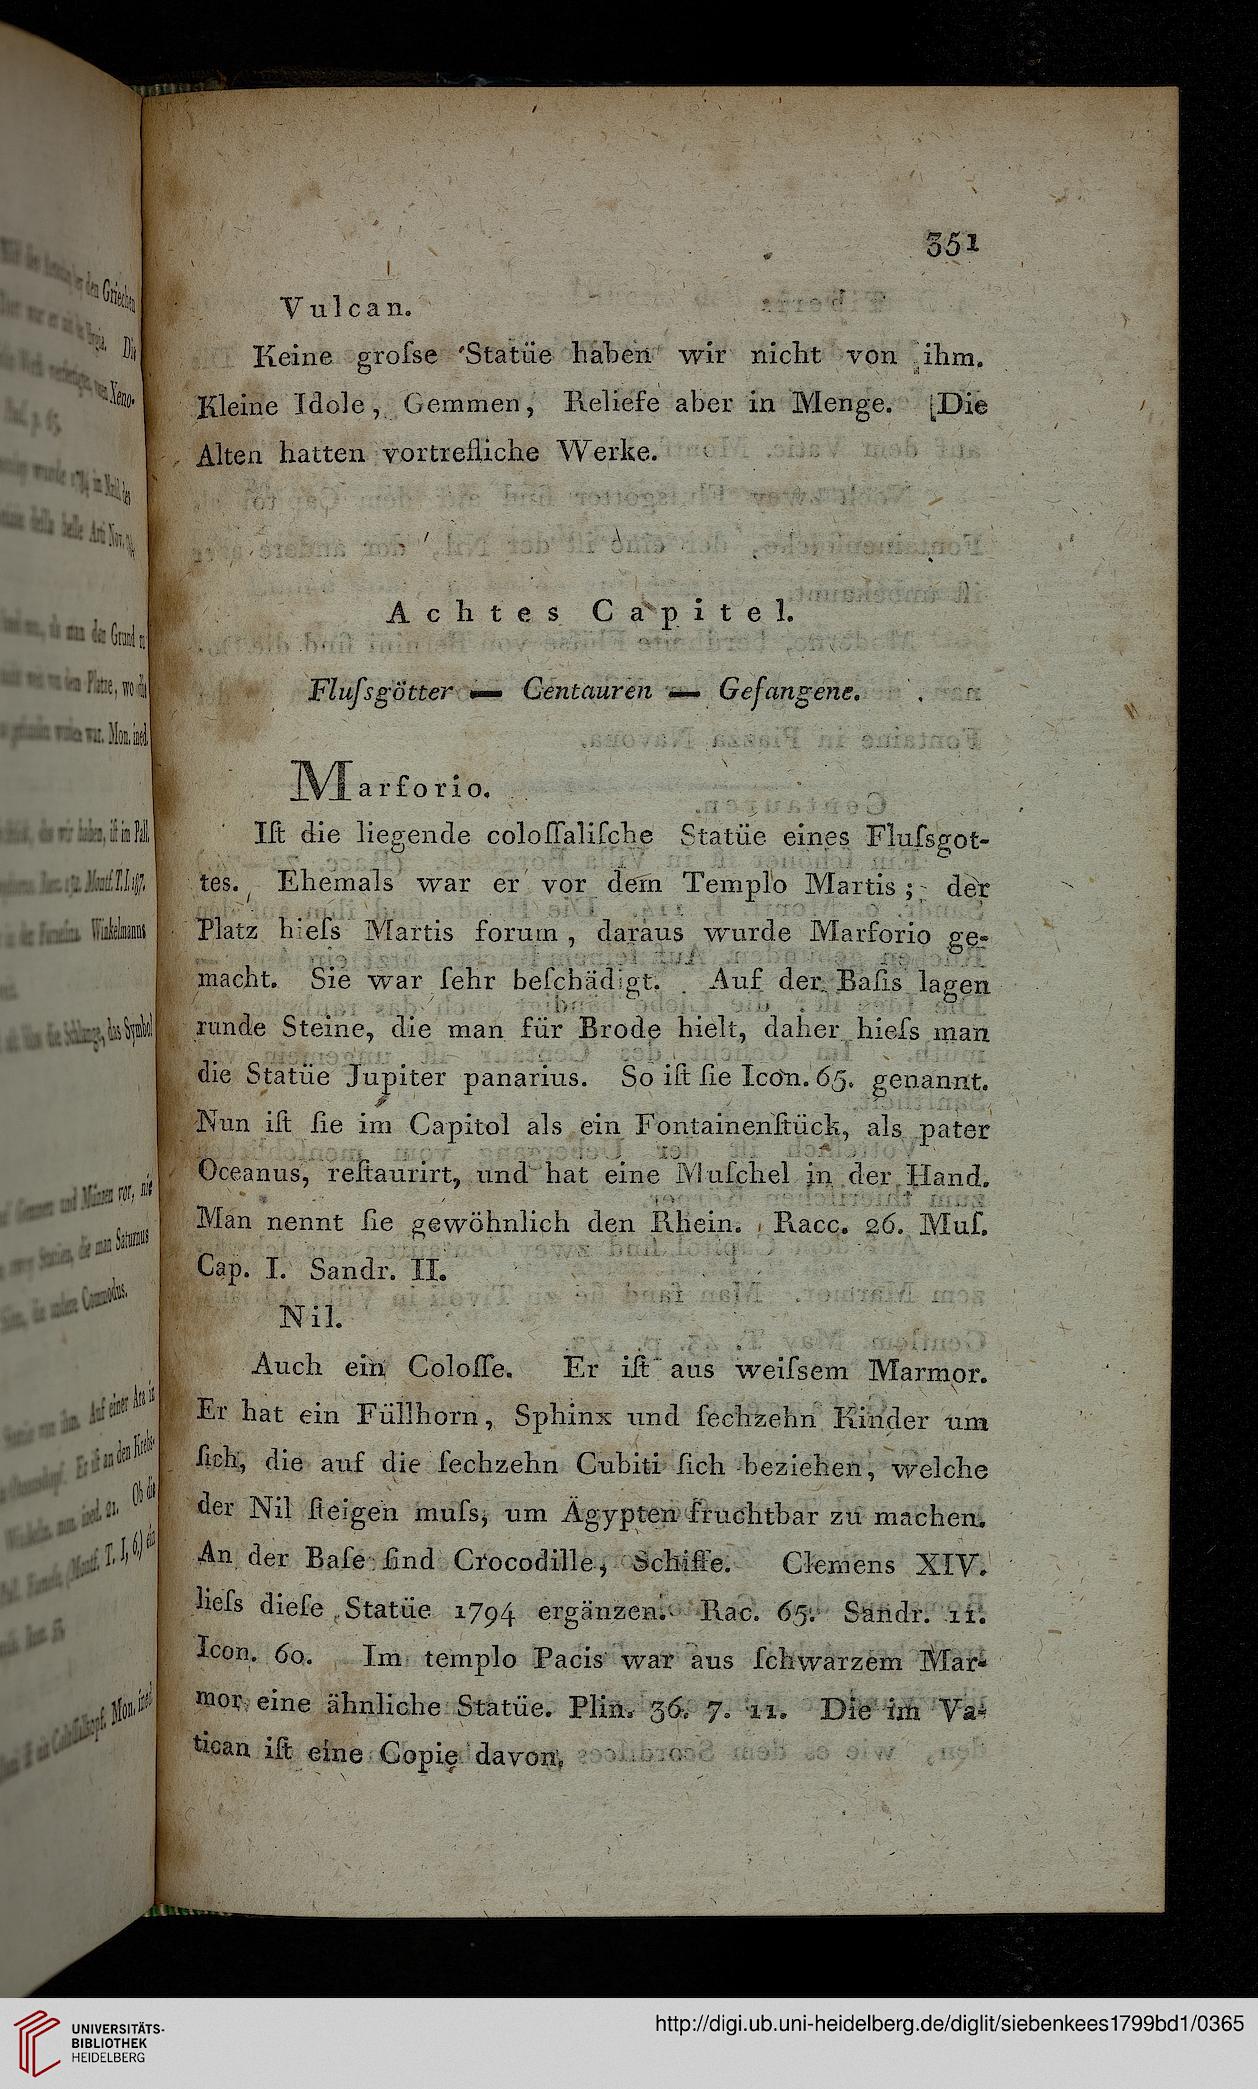 351
Vulcan.
Keine groſse Statüe haben wir nicht von ihm.
Kleine Idole, Gemmen, Reliefe aber in Menge. Die
Alten hatten vortrefliche Werke.
Achtes Capitel.
Fluſsgötter — Centauren — Gefangene.
Marforio.
Iſt die liegende coloſſaliſche Statüe eines Fluſsgot-
tes. Ehemals war er vor dem Templo Martis; der
Platz hieſs Martis forum, daraus wurde Marforio ge-
macht. Sie war ſehr beſchädigt. Auf der Baſis lagen
runde Steine, die man für Brode hielt, daher hieſs man
die Statüe Jupiter panarius. So iſt ſie Icon. 65. genannt.
Nun iſt ſie im Capitol als ein Fontainenſtück, als pater
Oceanus, reſtaurirt, und hat eine Muſchel in der Hand.
Man nennt ſie gewöhnlich den Rhein. Racc. 26. Muſ.
Cap. I. Sandr. II.
Nil.
Auch ein Coloſſe. Er iſt aus weiſsem Marmor.
Er hat ein Füllhorn, Sphinx und ſechzehn Kinder um
ſich, die auf die ſechzehn Cubiti ſich beziehen, welche
der Nil ſteigen muſs, um Ägypten fruchtbar zu machen.
An der Baſe ſind Crocodille, Schiffe. Clemens XIV.
lieſs dieſe Statüe 1794 ergänzen. Rac. 65. Sandr. 11.
Icon. 60. Im templo Pacis war aus ſchwarzem Mar-
mor eine ähnliche Statüe. Plin. 36. 7. 11. Die im Va-
tican iſt eine Copie davon.
UNIVERSITÄTS-
BIBLIOTHEK
HEIDELBERG
http://digi.ub.uni-heidelberg.de/diglit/siebenkees1799bd1/0365